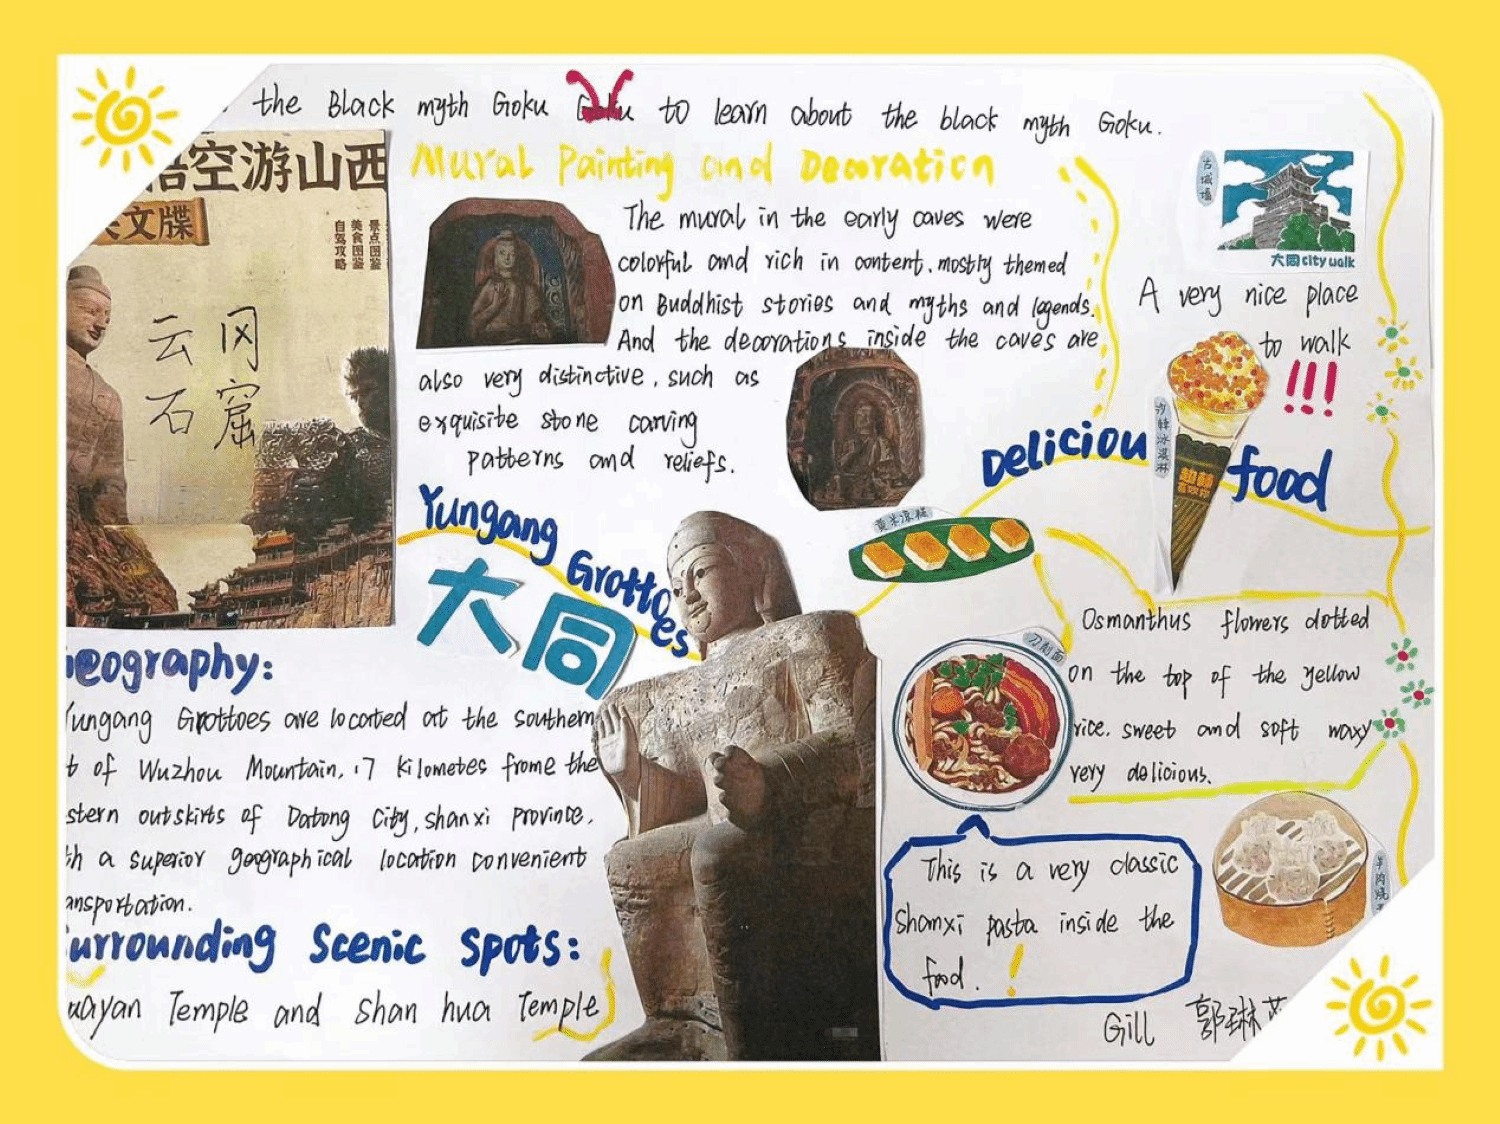 the Black myth Goku Goku to learn about the black myth Goku.
悟空游山西
关文牒
景点图鉴
美食图鉴
自驾攻略
云冈
石窟
Mural Painting and Decoration
The mural in the early caves were
colorful and rich in content. mostly themed
on Buddhist stories and myths and legends.
And the decorations inside the caves are
also very distinctive, such as
exquisite stone carving
patterns and reliefs.
古城墙
大同city walk
A very nice place
to walk
!!!
Deliciou food
沙棘冰淇淋
超棘
黄米凉糕
Yungang Grottoes
大同
eography:
Yungang Grottoes are located at the southern
t of Wuzhou Mountain, 17 kilometes frome the
stern outskirts of Datong City, shanxi province,
th a superior geographical location convenient
ansportation.
urrounding Scenic Spots:
uayan Temple and Shan hua Temple
刀削面
Osmanthus flowers dotted
on the top of the yellow
rice. sweet and soft waxy
very delicious.
羊肉烧
This is a very classic
Shanxi pasta inside the
food. !
Gill 郭琳